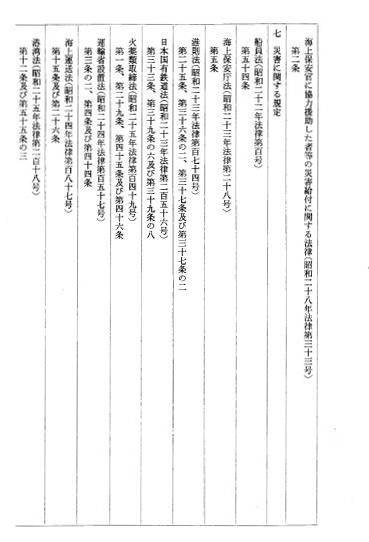 海上保安官に協力援助した者等の災害給付に関する法律(昭和二十八年法律第三十三号)
第二条
七 災害に関する規定
船員法(昭和二十二年法律第百号)
第五十四条
海上保安庁法(昭和二十三年法律第二十八号)
第五条
港則法(昭和二十三年法律第百七十四号)
第二十五条、第三十六条の二、第三十七条及び第三十七条の二
日本国有鉄道法(昭和二十三年法律第二百五十六号)
第三十三条、第三十九条の六及び第三十九条の八
火薬類取締法(昭和二十五年法律第百四十九号)
第一条、第二十九条、第四十五条及び第四十六条
運輸省設置法(昭和二十四年法律第百五十七号)
第三条の二、第四条及び第四十四条
海上運送法(昭和二十四年法律第百八十七号)
第十五条及び第二十六条
港湾法(昭和二十五年法律第二百十八号)
第十二条及び第五十五条の三